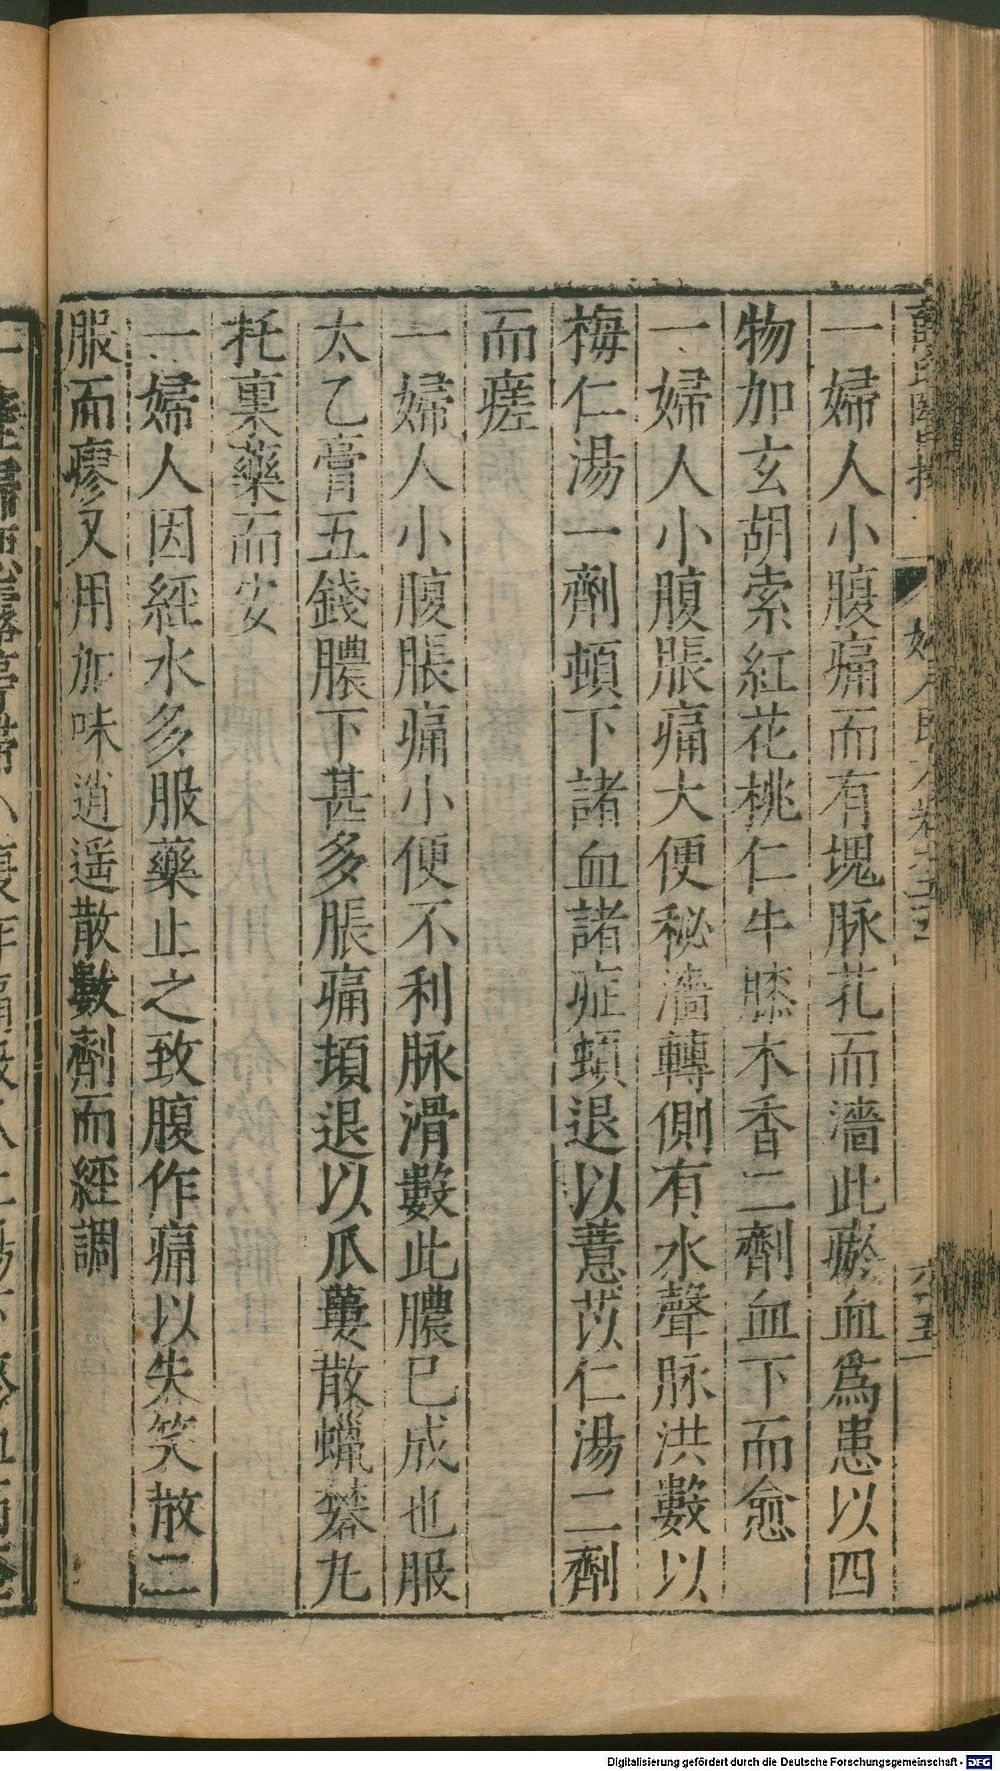 一婦人小腹痛而有塊脉芤而濇此瘀血爲患以四
物加玄胡索紅花桃仁牛膝木香二劑血下而愈
一婦人小腹脹痛大便秘濇轉側有水聲脉洪數以
梅仁湯一劑頓下諸血諸症頓退以薏苡仁湯二劑
而瘥
一婦人小腹脹痛小便不利脉滑數此膿已成也服
太乙膏五錢膿下甚多脹痛頓退以瓜蔞散蠟礬丸
托裏藥而安
一婦人因經水多服藥止之致腹作痛以失笑散二
服而瘳又用加味逍遥散數劑而經調
Digitalisierung gefördert durch die Deutsche Forschungsgemeinschaft - DFG